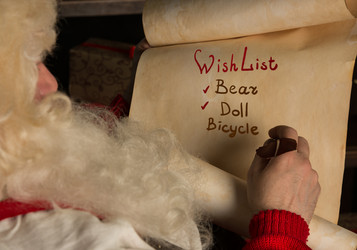 Wish List
✓ Bear
✓ Doll
Bicycle